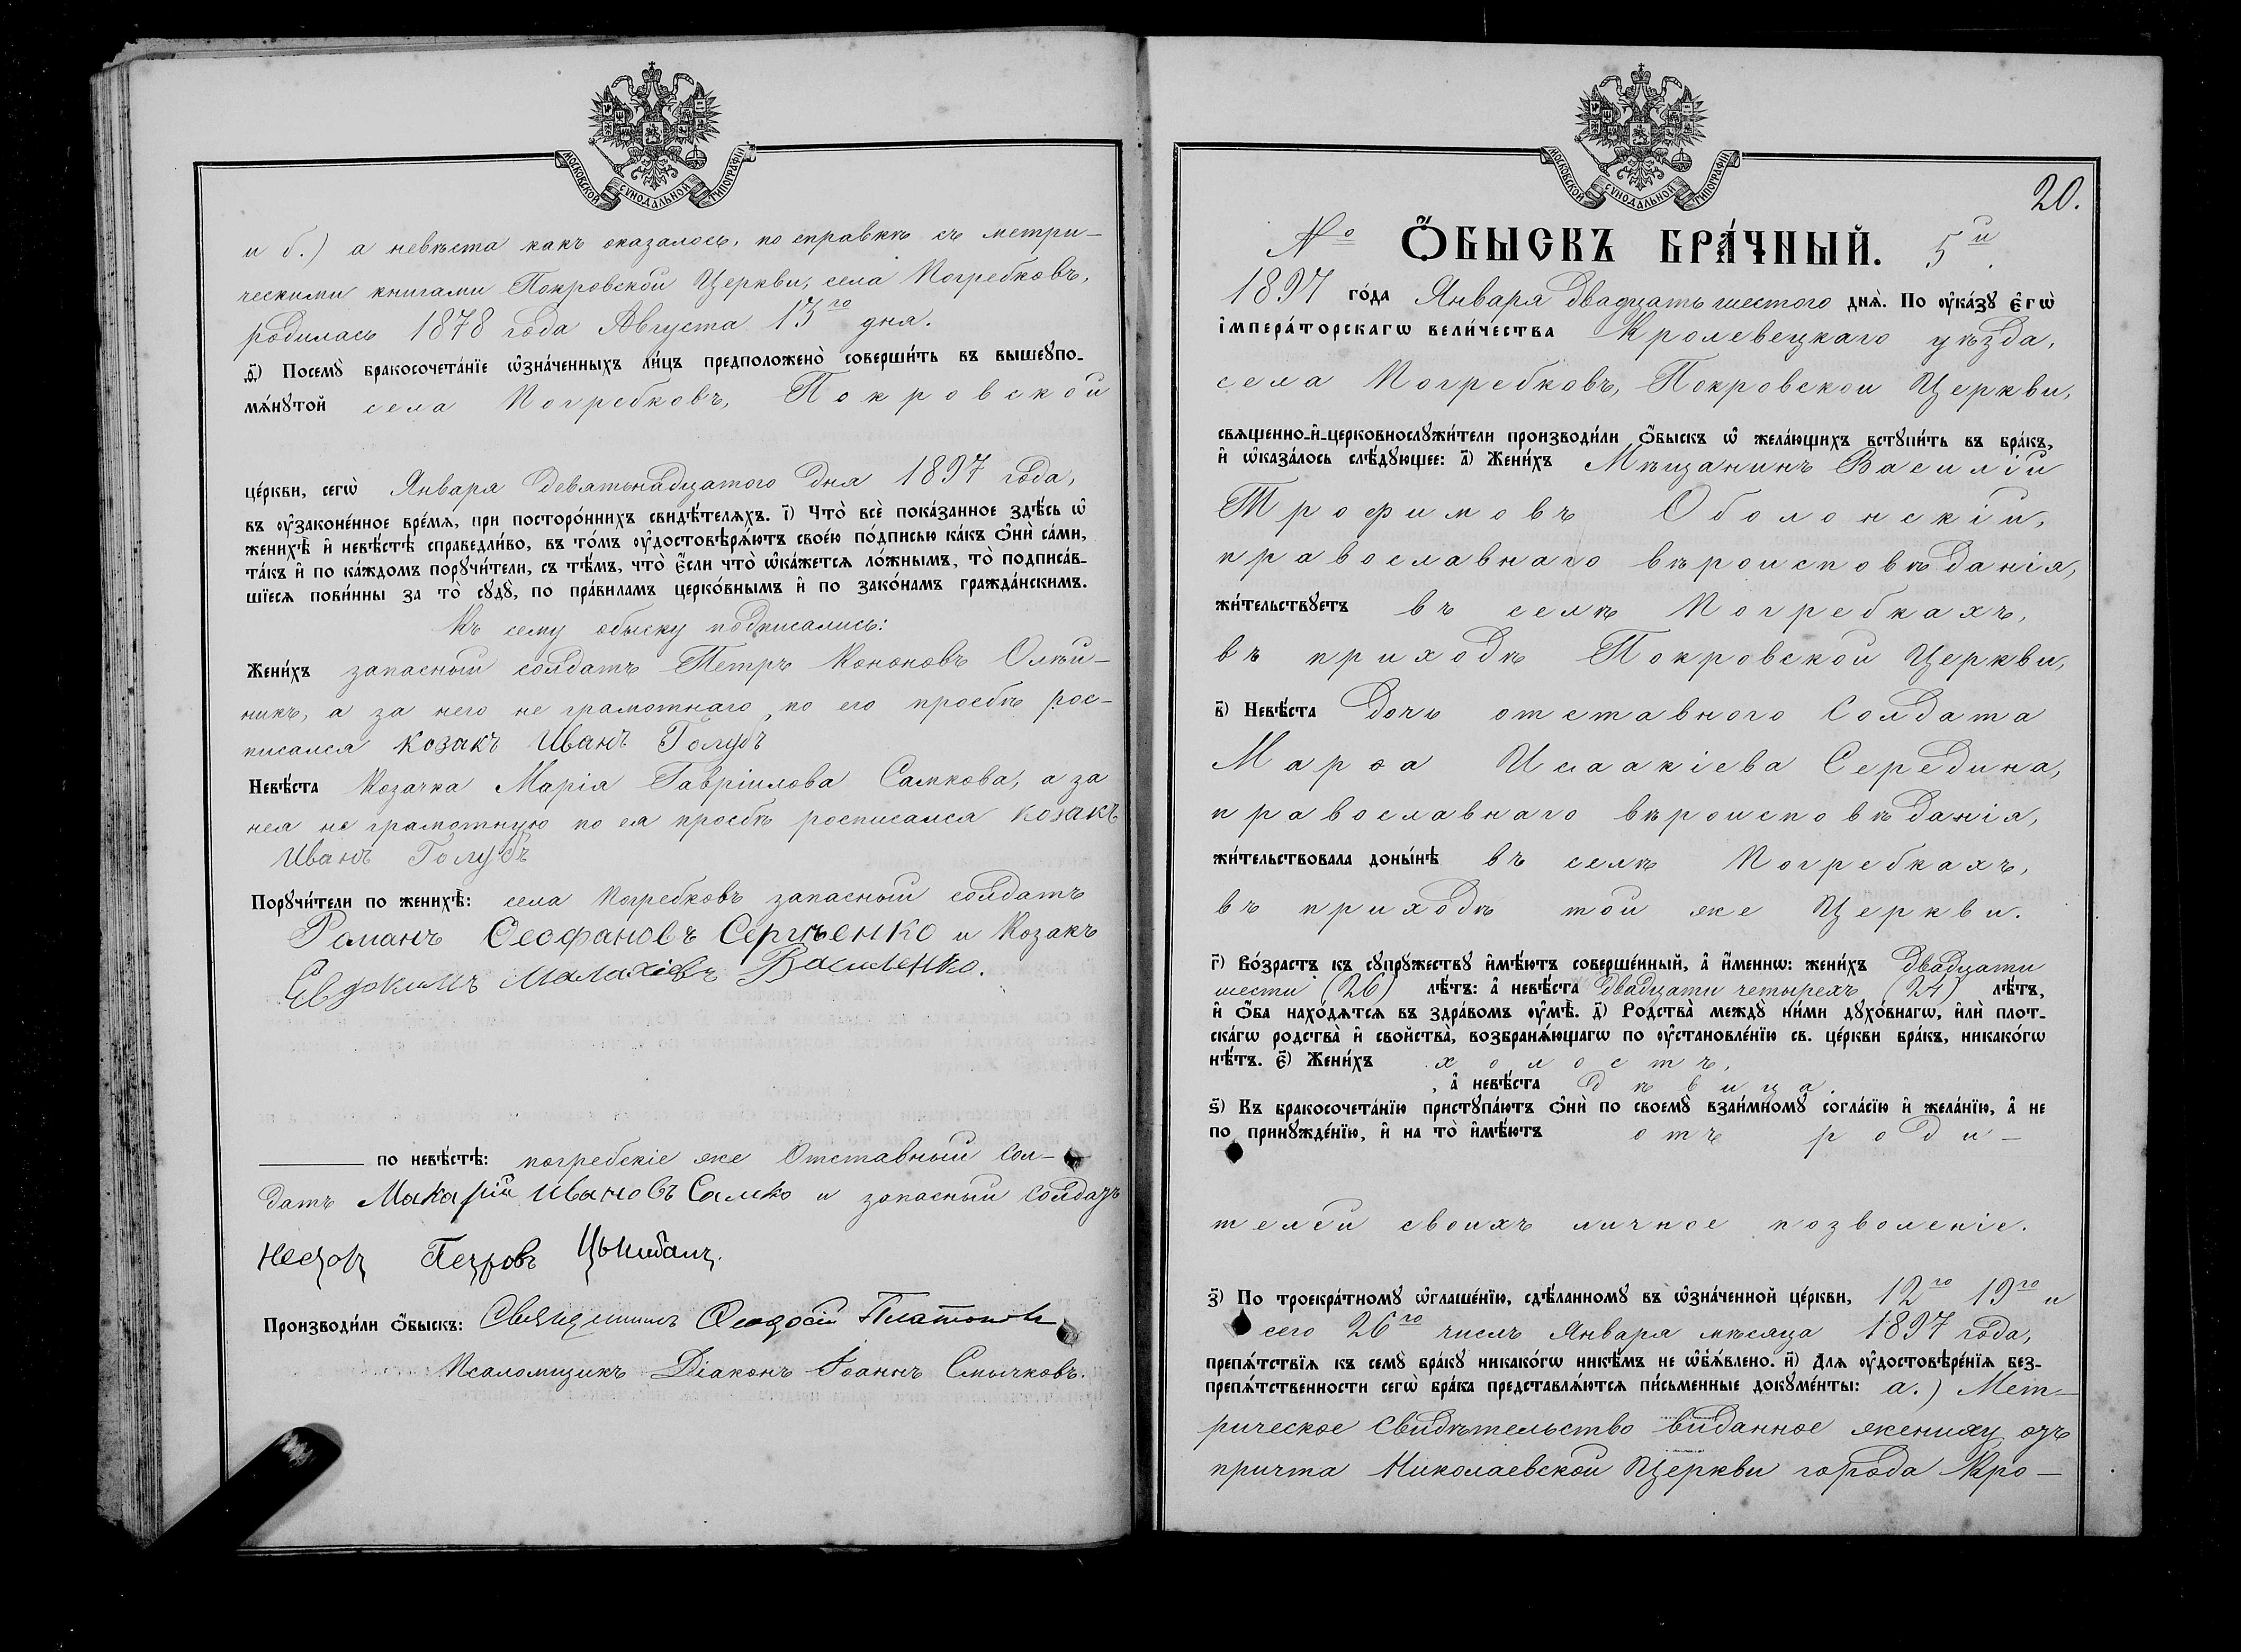 МОСКОВСКОЙ СѴНОДАЛЬНОЙ ТИПОГРАФІИ
и б.) а невѣста какъ оказалось, по справкѣ съ метри-
ческими книгами Покровской Церкви, села Погребковъ,
родилась 1878 года Августа 13го дня.
Посемꙋ̀ бракосочета́нїе ѡ҆зна́ченныхъ ли́цъ предположено̀ соверши́ть въ вышеꙋпо-
мѧ́нꙋтой села Погребковъ, Покровской
це́ркви, сегѡ̀ Января девятьнадцатого дня 1897 года,
въ ᲂу҆законе́нное вре́мѧ, при посторо́ннихъ свидѣ́телѧхъ. і҃) Что̀ всѐ пока́занное здѣ́сь ѡ҆
женихѣ̀ и҆ невѣ́стѣ справедли́во, въ то́мъ ᲂу҆достовѣрѧ́ютъ свое́ю по́дписью ка́къ ѻ҆нѝ са́ми,
та́къ и҆ по ка́ждомъ порꙋчи́тели, съ тѣ́мъ, что̀ є҆́сли что̀ ѡ҆ка́жетсѧ ло́жнымъ, то̀ подписа́в-
шїесѧ пови́нны за то̀ сꙋдꙋ̀, по пра́виламъ церко́внымъ и҆ по зако́намъ гражда́нскимъ.
Къ сему обыску подписались:
Жени́хъ запасный солдатъ Петръ Кононовъ Олѣй-
никъ, а за него не грамотнаго, по его просьбѣ рос-
писался козакъ Иванъ Голубъ
Невѣ́ста Козачка Марія Гавріилова Самкова, а за
нея не грамотную по ея просьбѣ росписался козакъ
Иванъ Голубъ
Порꙋчи́тели по женихѣ̀: села Погребковъ запасный солдатъ
Романъ Ѳеофановъ Сергѣенко и Козакъ
Евдокимъ Малахіевъ Василенко.
по невѣ́стѣ: погребскіе же Отставный Сол-
датъ Макарій Ивановъ Самко и запасный солдатъ
Несторъ Петровъ Цыибалъ.
Производи́ли ѻ҆́быскъ: Священникъ Ѳеодосій Платоновъ
Псаломщикъ Діаконъ Іоаннъ Смычковъ.
МОСКОВСКОЙ СѴНОДАЛЬНОЙ ТИПОГРАФІИ
20.
№ Ѻ҆́БЫСКЪ БРА́ЧНЫЙ. 5й.
1897 го́да Января двадцать шестого днѧ̀. По ᲂу҆ка́зꙋ є҆гѡ̀
і҆мпера́торскагѡ вели́чества Кролевецкаго уѣзда,
села Погребковъ, Покровской Церкви,
свѧщенно-и҆-церковнослꙋжи́тели производи́ли ѻ҆́быскъ ѡ҆ жела́ющихъ встꙋпи́ть въ бра́къ,
и҆ ѡ҆каза́лось слѣ́дꙋющее: а҃) Жени́хъ Мѣщанинъ Василій
Трофимовъ Оболонскій,
православнаго вѣроисповѣданія,
жи́тельствꙋетъ въ селѣ Погребкахъ,
въ приходѣ Покровской Церкви,
в҃) Невѣ́ста дочь отставного Солдата
Марѳа Исаакіева Середина,
православнаго вѣроисповѣданія,
жи́тельствовала доны́нѣ въ селѣ Погребкахъ,
въ приходѣ той же Церкви.
г҃) Во́зрастъ къ сꙋпрꙋ́жествꙋ и҆мѣ́ютъ соверше́нный, а҆ и҆́меннѡ: жени́хъ двадцати
шести (26) лѣ́тъ: а҆ невѣ́ста двадцати четырехъ (24) лѣ́тъ,
и҆ ѻ҆́ба нахо́дѧтсѧ въ здра́вомъ ᲂу҆мѣ̀. д҃) Родства̀ междꙋ̀ ни́ми дꙋхо́внагѡ, и҆лѝ плот-
ска́гѡ родства̀ и҆ сво́йства, возбранѧ́ющагѡ по ᲂу҆становле́нїю св. це́ркви бра́къ, никако́гѡ
нѣ́тъ. є҃) Жени́хъ холостъ,
а҆ невѣ́ста дѣвица.
ѕ҃) Къ бракосочета́нїю пристꙋпа́ютъ ѻ҆нѝ по своемꙋ̀ взаи́мномꙋ согла́сїю и҆ жела́нїю, а҆ не
по принꙋжде́нїю, и҆ на то̀ и҆мѣ́ютъ отъ роди-
телей своихъ личное позволеніе.
з҃) По троекра́тномꙋ ѡ҆глаше́нїю, сдѣ́ланномꙋ въ ѡ҆зна́ченной це́ркви, 12го 19го и
сего 26го числъ Января мѣсяца 1897 года,
препѧ́тствїѧ къ семꙋ̀ бра́кꙋ никако́гѡ никѣ́мъ не ѡ҆б̾ѧ́влено. и҃) Длѧ ᲂу҆достовѣре́нїѧ без-
препѧ́тственности сегѡ̀ бра́ка представлѧ́ютсѧ пи́сьменные докꙋме́нты: а.) Мет-
рическое Свидѣтельство виданное жениху отъ
причта Николаевской Церкви города Кро-